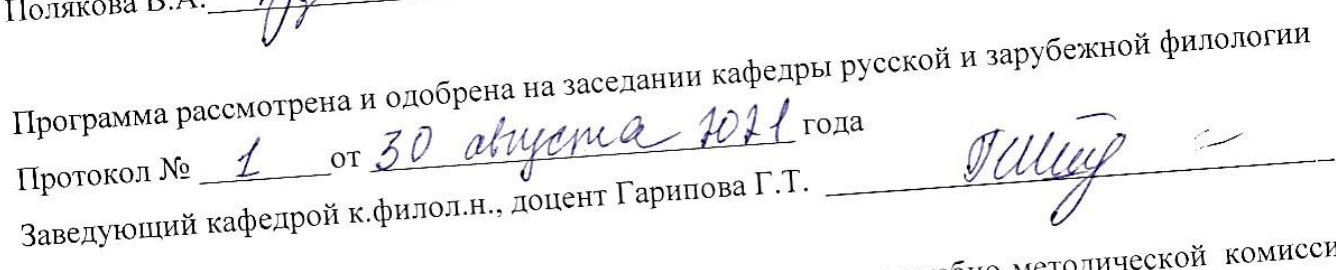 Полякова В.А.
Программа рассмотрена и одобрена на заседании кафедры русской и зарубежной филологии
Протокол № 1 от 30 августа 2021 года
Заведующий кафедрой к.филол.н., доцент Гарипова Г.Т.
методической комисси